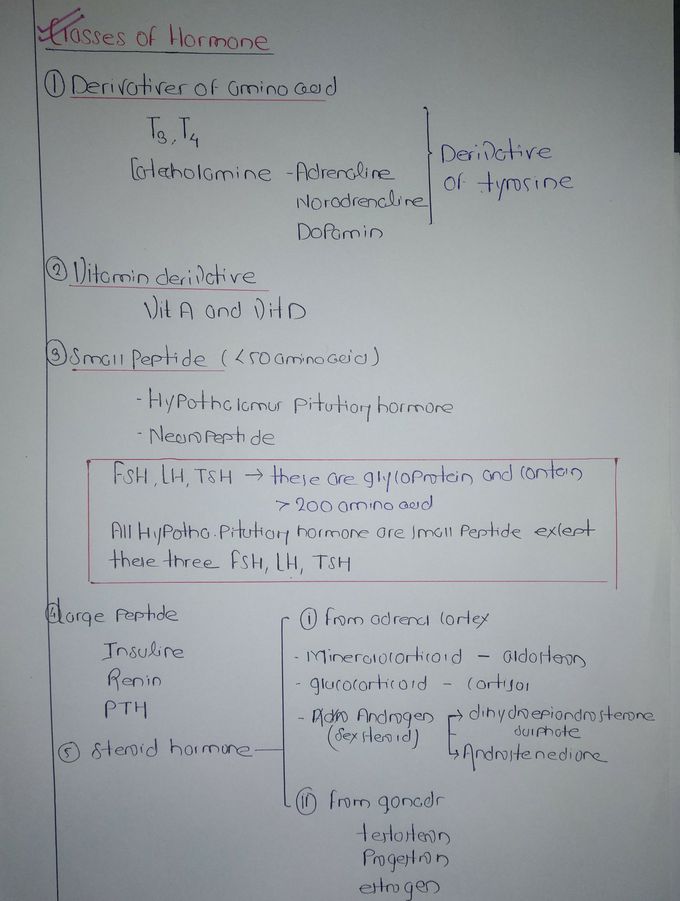 Classes of Hormone
① Derivatives of amino acid
T3, T4
Catecholamine - Adrenaline
Noradrenaline
Dopamin
Derivative
of tyrosine
② Vitamin derivative
Vit A and Vit D
③ Small Peptide (<50 amino acid)
- Hypothalamus Pitutiory hormone
- Neuropeptide
FSH, LH, TSH → these are glycoprotein and contain
> 200 amino acid
All Hypotha. Pitutiory hormone are small peptide except
these three FSH, LH, TSH
④ large Peptide
Insuline
Renin
PTH
⑤ Steroid hormone
① from adrenal cortex
- Mineralocorticoid - aldosteron
- glucocorticoid - cortisol
- Androgen → dihydroepiandrosterone
(sex steroid) sulphate
↳ Androstenedione
⑪ from gonads
testosteron
Progestron
estrogen